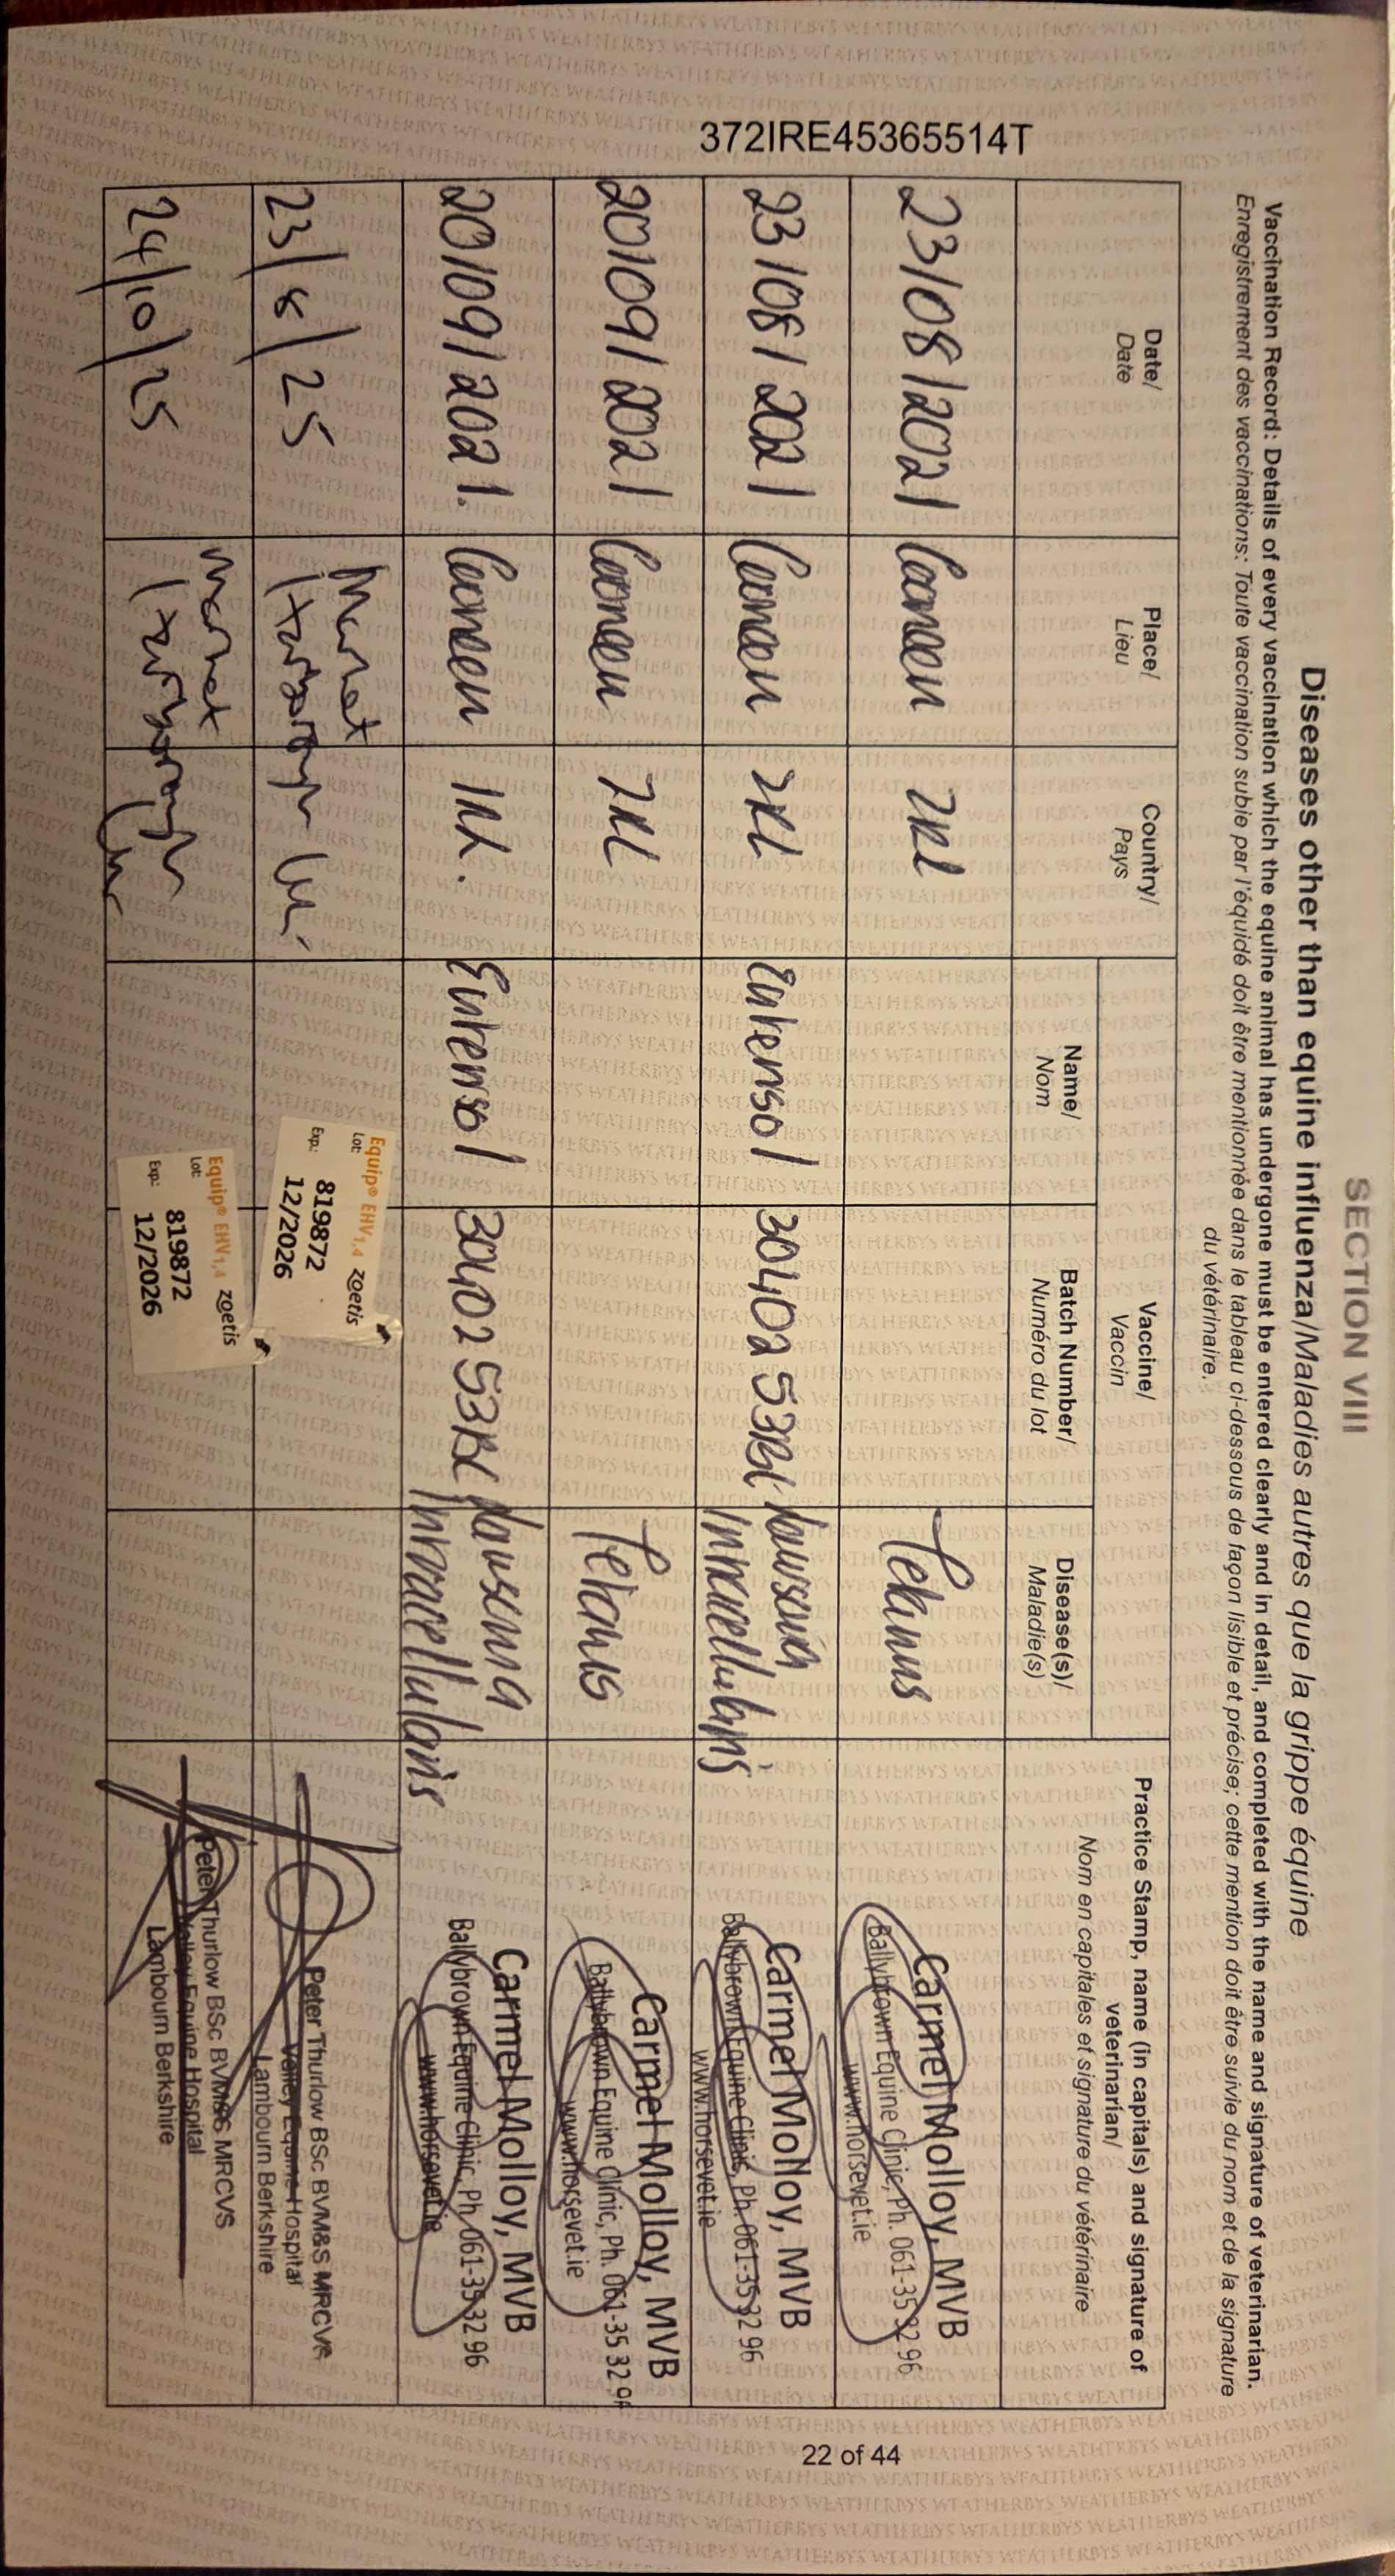 SECTION VIII
Diseases other than equine influenza/Maladies autres que la grippe équine
Vaccination Record: Details of every vaccination which the equine animal has undergone must be entered clearly and in detail, and completed with the name and signature of veterinarian.
Enregistrement des vaccinations: Toute vaccination subie par l'équidé doit être mentionnée dans le tableau ci-dessous de façon lisible et précise; cette mention doit être suivie du nom et de la signature
du vétérinaire.
372IRE45365514T
Date/
Date
Place/
Lieu
Country/
Pays
Vaccine/
Vaccin
Name/
Nom
Batch Number/
Numéro du lot
Disease(s)/
Maladie(s)
Practice Stamp, name (in capitals) and signature of
veterinarian/
Nom en capitales et signature du vétérinaire
23/08/2021 Cooneen IRL Tetanus
Carmel Molloy, MVB
Ballybrown Equine Clinic, Ph. 061-35 32 96
www.horsevet.ie
23/08/2021 Cooneen IRL 3040253 Lawsonia
Intracellularis
Carmel Molloy, MVB
Ballybrown Equine Clinic, Ph. 061-35 32 96
www.horsevet.ie
20/09/2021 Cooneen IRL Tetanus
Carmel Molloy, MVB
Ballybrown Equine Clinic, Ph. 061-35 32 96
www.horsevet.ie
20/09/2021. Cooneen 3040253 Lawsonia
Intracellularis
Carmel Molloy, MVB
Ballybrown Equine Clinic, Ph. 061-35 32 96
www.horsevet.ie
23/8/25 Market
Equip® EHV1,4 zoetis
Lot: 819872
Exp.: 12/2026
Peter Thurlow BSc BVM&S MRCVS
Valley Equine Hospital
Lambourn Berkshire
24/10/25 Market
Equip® EHV1,4 zoetis
Lot: 819872
Exp.: 12/2026
Peter Thurlow BSc BVM&S MRCVS
Valley Equine Hospital
Lambourn Berkshire
22 of 44